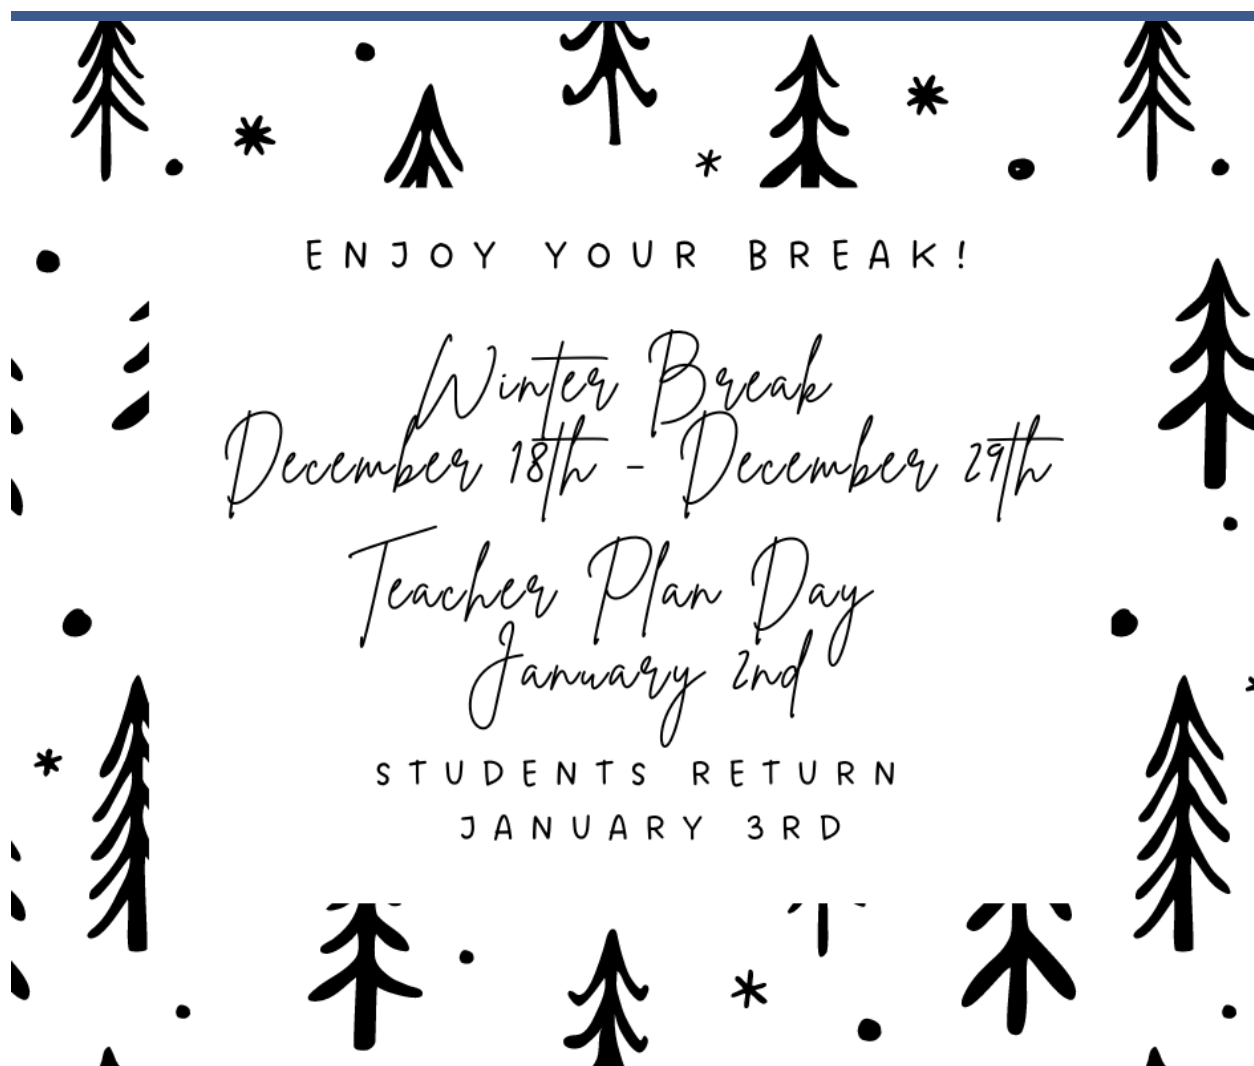 ENJOY YOUR BREAK!
Winter Break
December 18th - December 29th
Teacher Plan Day
January 2nd
STUDENTS RETURN
JANUARY 3RD